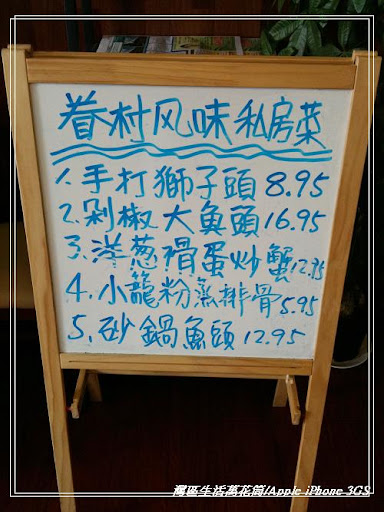 眷村风味私房菜
1. 手打獅子頭 8.95
2. 剁椒大魚頭 16.95
3. 洋葱滑蛋炒蟹 12.95
4. 小籠粉蒸排骨 5.95
5. 砂鍋魚頭 12.95
灣區生活萬花筒/Apple iPhone 3GS